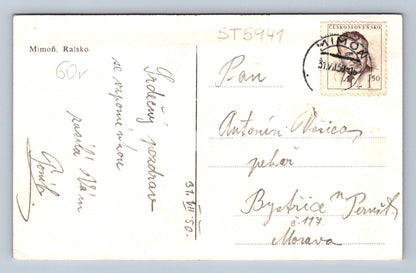 ST5941
Mimoň, Ralsko.
60,-
ČESKOSLOVENSKO
1,50
MIMOŇ
31.VII.50
Srdečný pozdrav
se vzpomínkou
posílá Vám
31. VII. 50.
Pan
Antonín
pekař
Bystřice n Pernšt.
č. 117
Morava